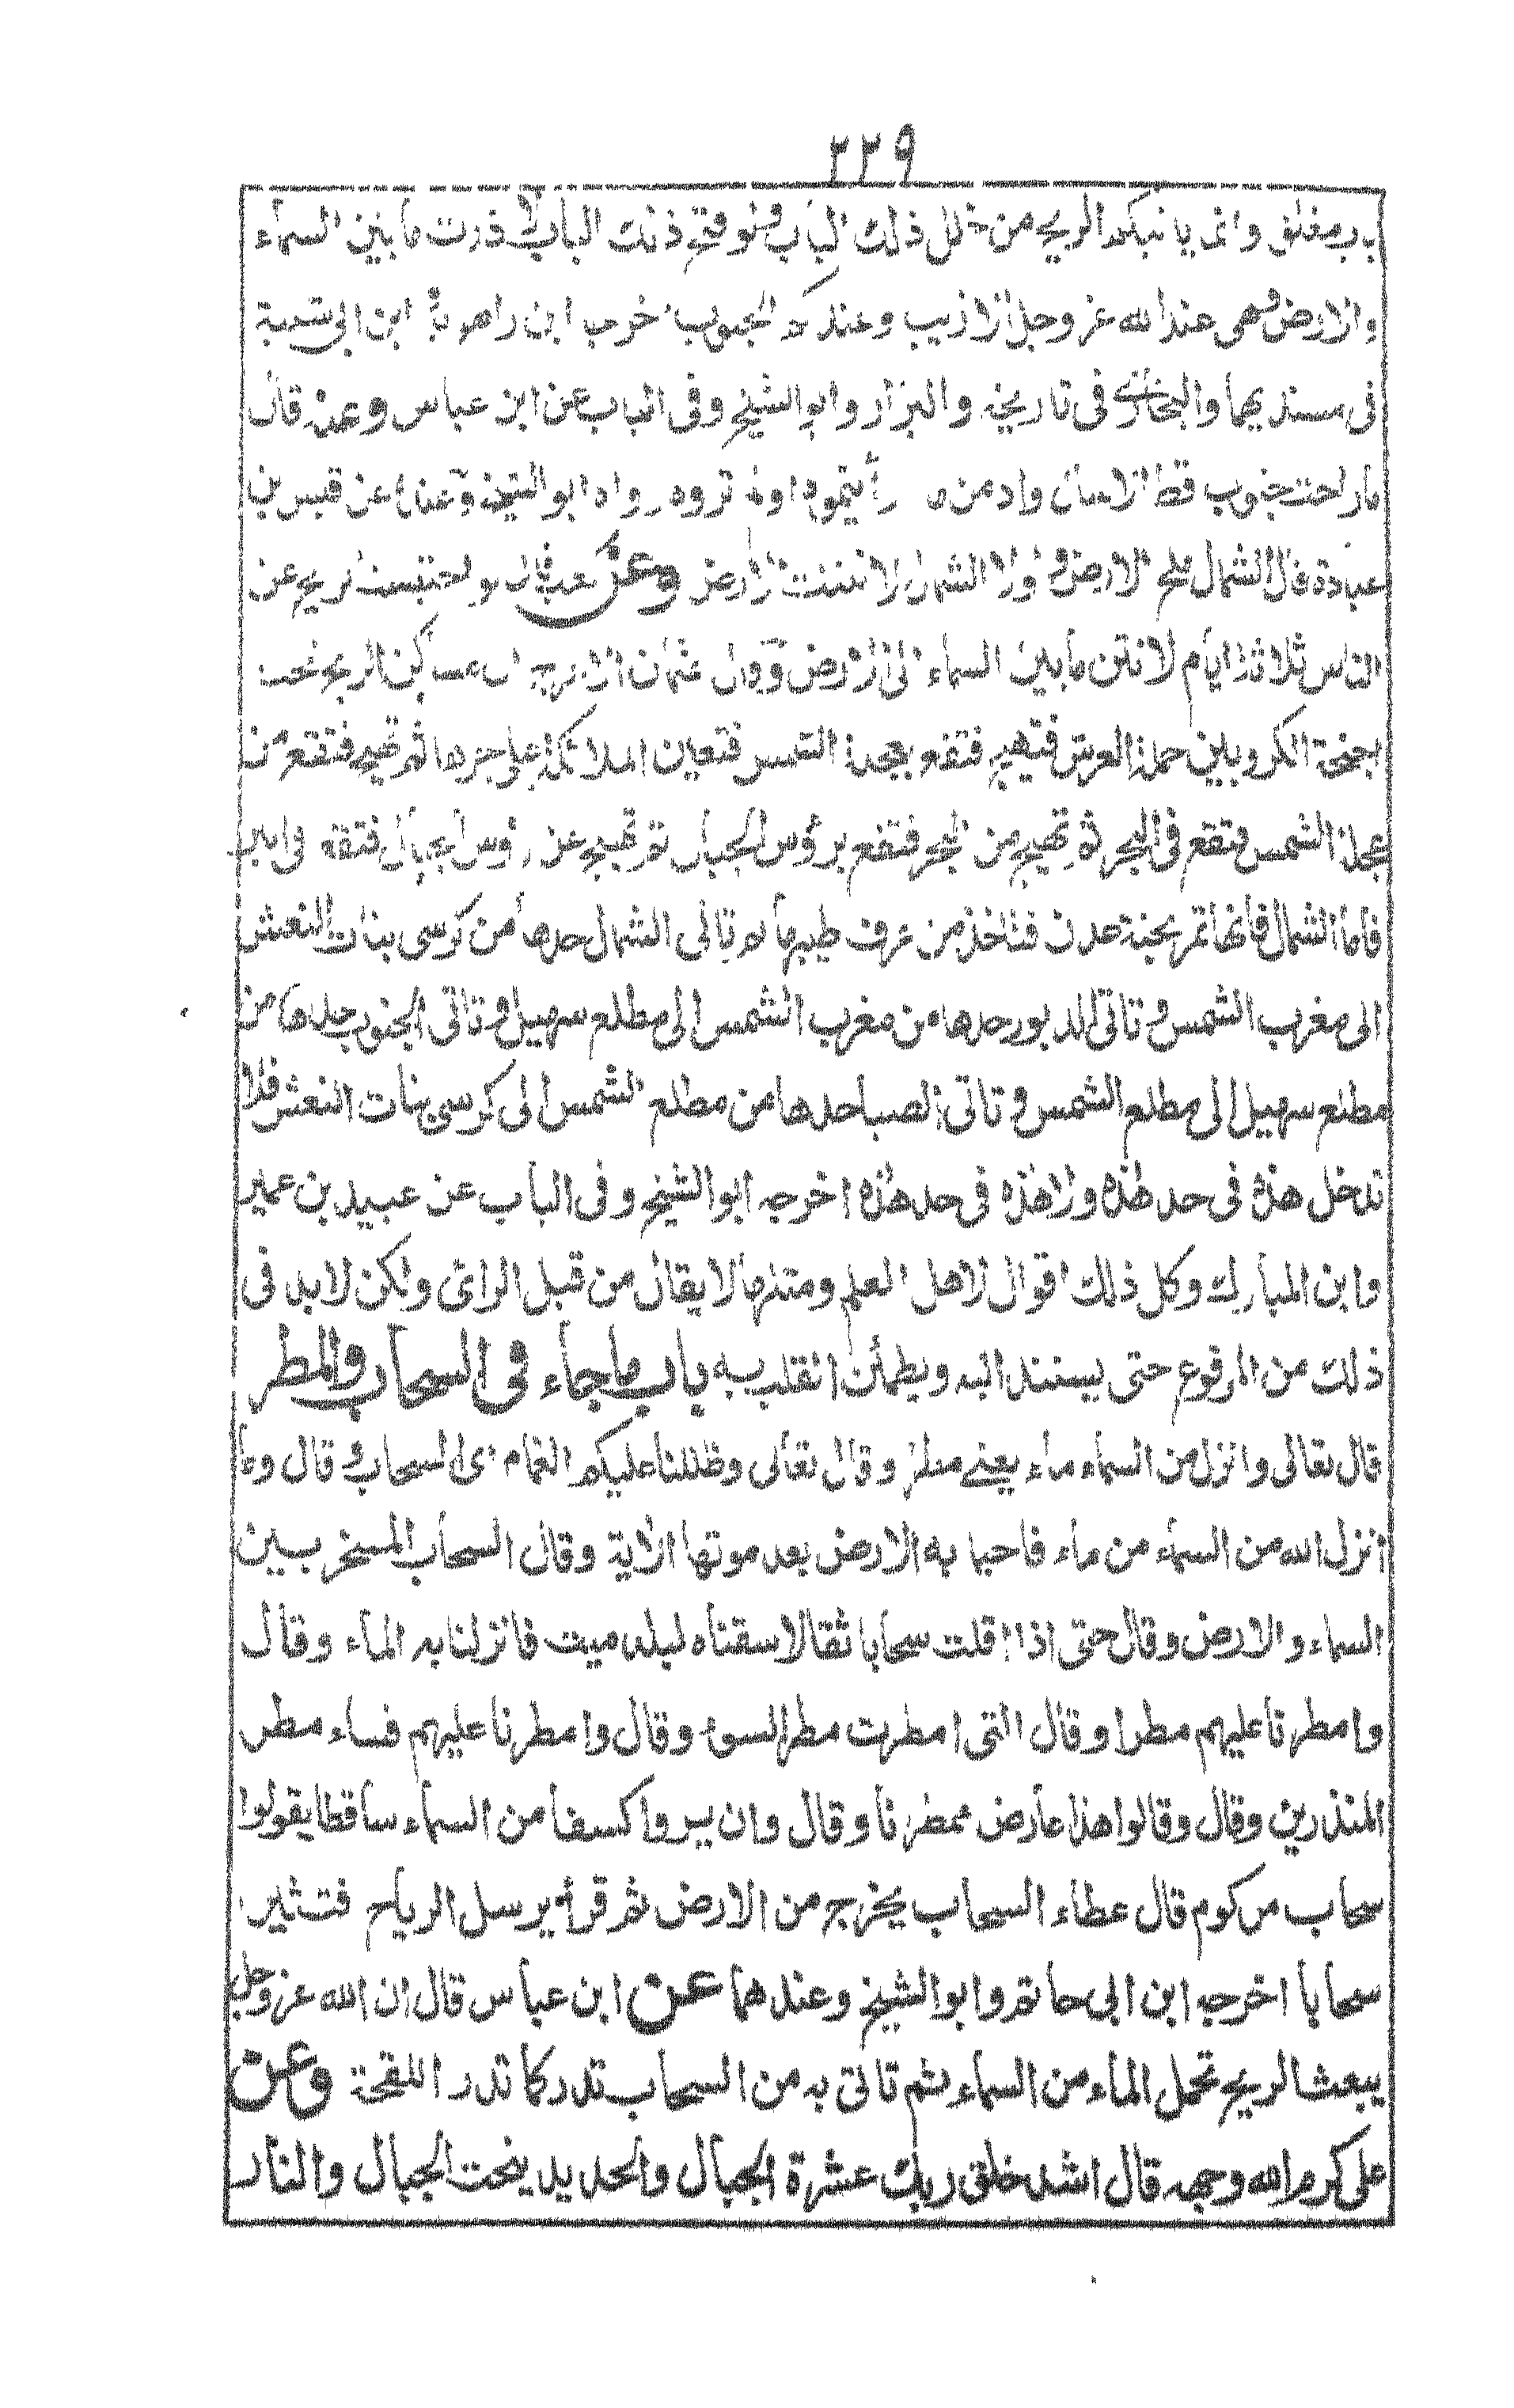 ٢٢٩
باب مغلق وانما ياتيكم الريح من خلل ذلك الباب ولو فتح ذلك الباب لاذرت ما بين السماء
والارض وهى عند الله عز وجل الازيب وعندكم الجنوب اخرجه ابن راهويه وابن ابى شيبة
فى مسنديهما والبخارى فى تاريخه والبزار وابو الشيخ وفى الباب عن ابن عباس وعنه قال
ما راحت جنوب قط الا سال واد من ماء رأيتموه اولم تروه رواه ابو الشيخ وعنده عن قيس بن
عبادة قال الشمال ملح الارض ولولا الشمال لانتنت الارض وعن كعب قال لو احتبست الريح عن
الناس ثلاثة ايام لانتن ما بين السماء الى الارض وقال عثمان الاعرج ان مساكن الريح تحت
اجنحة الكروبيين حملة العرش فتهيج فتقع بعجلة الشمس فتعين الملائكة على جرها ثم تهيج فتقع من
عجلة الشمس فتقع فى البحر ثم تهيج من البحر فتقع برؤس الجبال ثم تهيج عن رؤس الجبال فتقع فى البر
فاما الشمال فانها تمر بجنة عدن فتاخذ من عرف طيبها ثم تاتى الشمال حدها من كرسى بنات النعش
الى مغرب الشمس وتاتى الدبور حدها من مغرب الشمس الى مطلع سهيل وتاتى الجنوب حدها من
مطلع سهيل الى مطلع الشمس وتاتى الصبا حدها من مطلع الشمس الى كرسى بنات النعش فلا
تدخل هذه فى حد هذه ولا هذه فى حد هذه اخرجه ابو الشيخ وفى الباب عن عبيد بن عمير
وابن المبارك وكل ذلك اقوال لاهل العلم ومتنها لا يقال من قبل الراى ولكن لابد فى
ذلك من المرفوع حتى يستند اليه ويطمئن القلب به باب ما جاء فى السحاب والمطر
قال تعالى وانزل من السماء ماء يعنى مطرا وقال تعالى وظللنا عليكم الغمام اى السحاب وقال وما
انزل الله من السماء من ماء فاحيا به الارض بعد موتها الاية وقال السحاب المسخر بين
السماء والارض وقال حتى اذا اقلت سحابا ثقالا سقناه لبلد ميت فانزلنا به الماء وقال
وامطرنا عليهم مطرا وقال التى امطرت مطر السوء وقال وامطرنا عليهم فساء مطر
المنذرين وقال وقالوا هذا عارض ممطرنا وقال وان يروا كسفا من السماء ساقطا يقولوا
سحاب مركوم قال عطاء السحاب يخرج من الارض ثم قرأ يرسل الرياح فتثير
سحابا اخرجه ابن ابى حاتم وابو الشيخ وعندهما عن ابن عباس قال ان الله عز وجل
يبعث الريح تحمل الماء من السماء ثم تاتى به من السحاب تدر كما تدر اللقحة وعن
على كرم الله وجهه قال اشد خلق ربك عشرة الجبال والحديد ينحت الجبال والنار